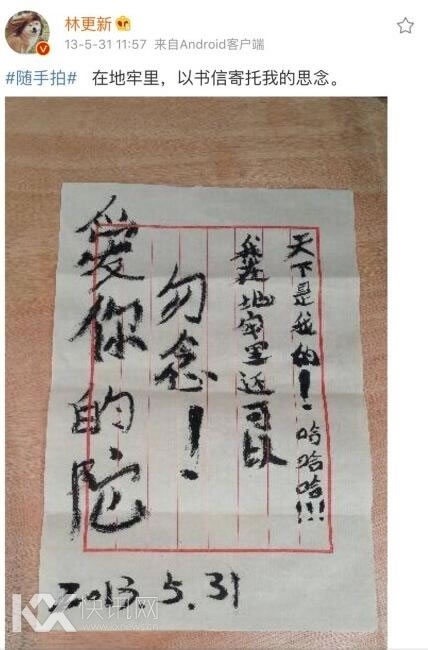 林更新
13-5-31 11:57 来自Android客户端
#随手拍# 在地牢里，以书信寄托我的思念。
天下是我的！哈哈哈!!!
我在地牢里还可以
勿念！
愛你的陀
2013.5.31
KX 快讯网